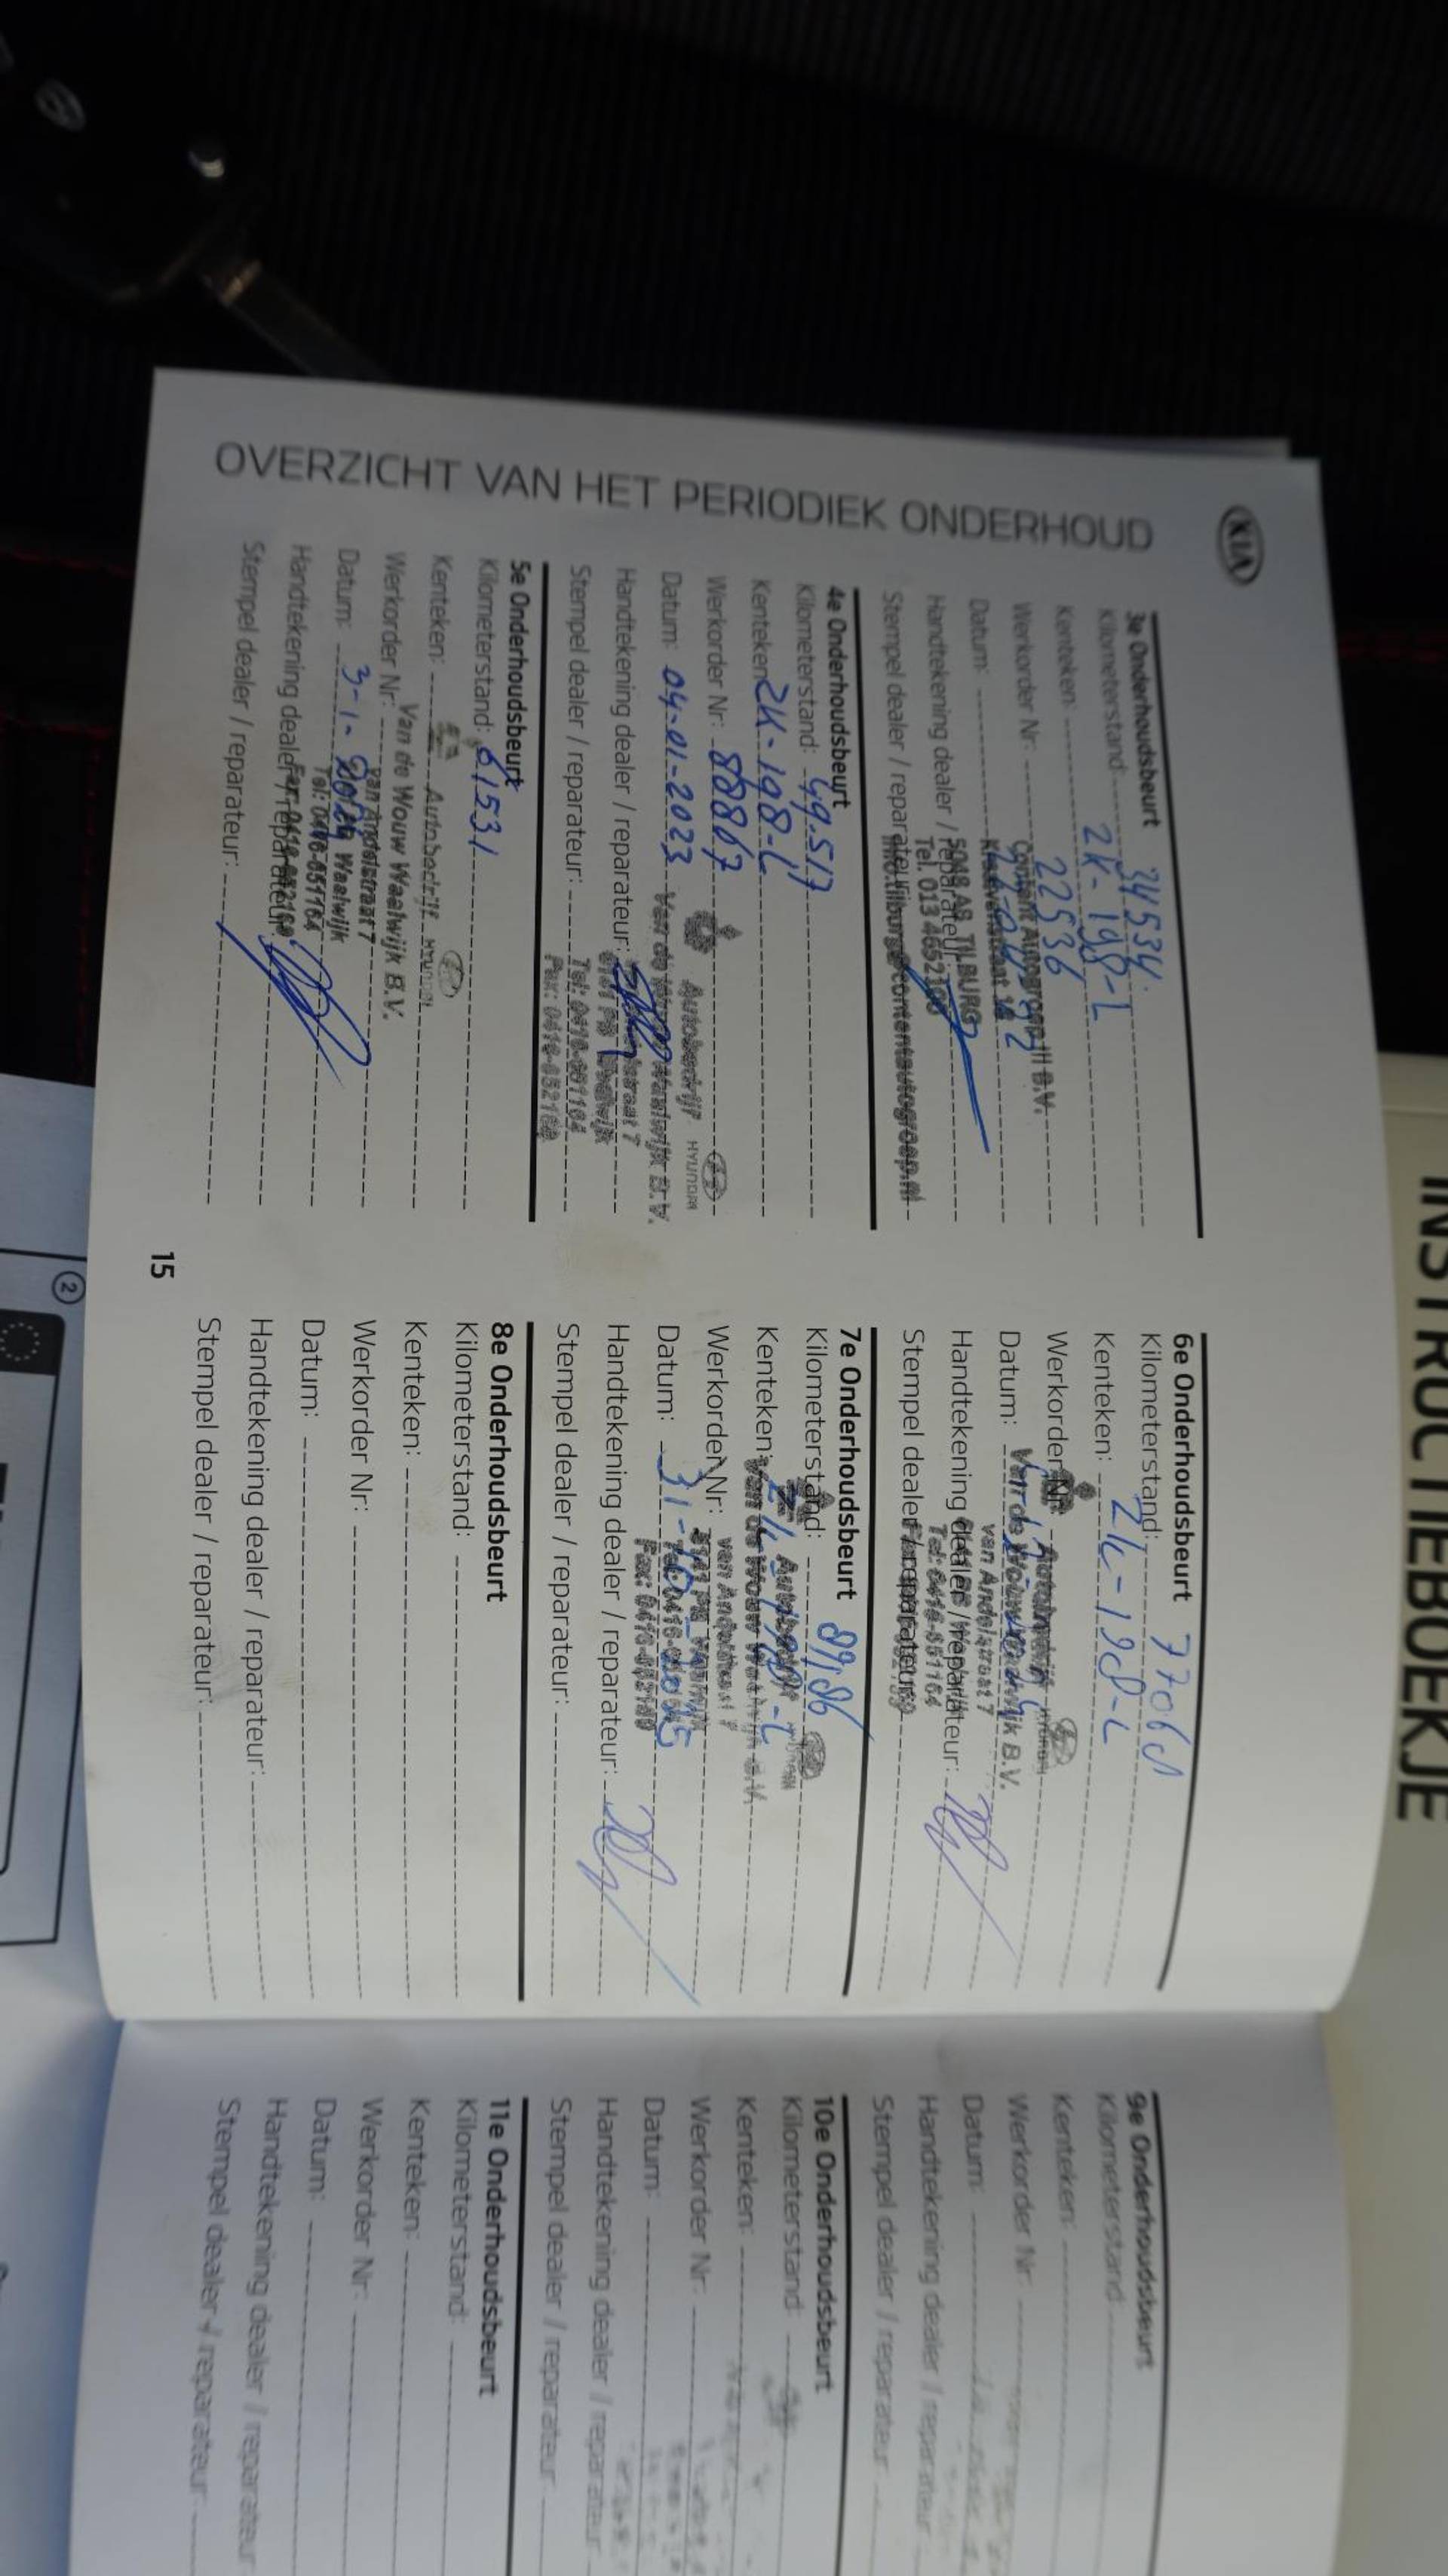 KIA
OVERZICHT VAN HET PERIODIEK ONDERHOUD
3e Onderhoudsbeurt
Kilometerstand: 34534.
Kenteken: 2K-198-L
Werkorder Nr: 22536
Content Autogroep III B.V.
Datum:
5048 AS TILBURG
Handtekening dealer / reparateur:
Tel. 013 4652100
Stempel dealer / reparateur:
info.tilburg@contentautogroep.nl
4e Onderhoudsbeurt
Kilometerstand: 49.517
Kenteken: 2K-198-L
Werkorder Nr: 88867
Autobedrijf HYUNDAI
Datum: 04-01-2023
Van de Wouw Waalwijk B.V.
Handtekening dealer / reparateur:
Stempel dealer / reparateur:
Tel: 0416-651164
Fax: 0416-652169
5e Onderhoudsbeurt
Kilometerstand: 61531
Kenteken:
Autobedrijf HYUNDAI
Werkorder Nr:
Van de Wouw Waalwijk B.V.
van Andelstraat 7
Datum: 3-1-
Waalwijk
Tel: 0416-651164
Handtekening dealer / reparateur:
Stempel dealer / reparateur:
15
6e Onderhoudsbeurt
Kilometerstand:
Kenteken: 2K-198-L
Werkorder Nr:
Autobedrijf HYUNDAI
Datum:
Van de Wouw Waalwijk B.V.
van Andelstraat 7
Handtekening dealer / reparateur:
Tel: 0416-651164
Stempel dealer / reparateur:
7e Onderhoudsbeurt
Kilometerstand:
Autobedrijf
Kenteken:
Van de Wouw Waalwijk B.V.
Werkorder Nr:
van Andelstraat 7
Datum: 31-10-2025
Fax: 0416-652169
Handtekening dealer / reparateur:
Stempel dealer / reparateur:
8e Onderhoudsbeurt
Kilometerstand:
Kenteken:
Werkorder Nr:
Datum:
Handtekening dealer / reparateur:
Stempel dealer / reparateur:
9e Onderhoudsbeurt
Kilometerstand:
Kenteken:
Werkorder Nr:
Datum:
Handtekening dealer / reparateur:
Stempel dealer / reparateur:
10e Onderhoudsbeurt
Kilometerstand:
Kenteken:
Werkorder Nr:
Datum:
Handtekening dealer / reparateur:
Stempel dealer / reparateur:
11e Onderhoudsbeurt
Kilometerstand:
Kenteken:
Werkorder Nr:
Datum:
Handtekening dealer / reparateur:
Stempel dealer / reparateur:
INSTRUCTIEBOEKJE
2